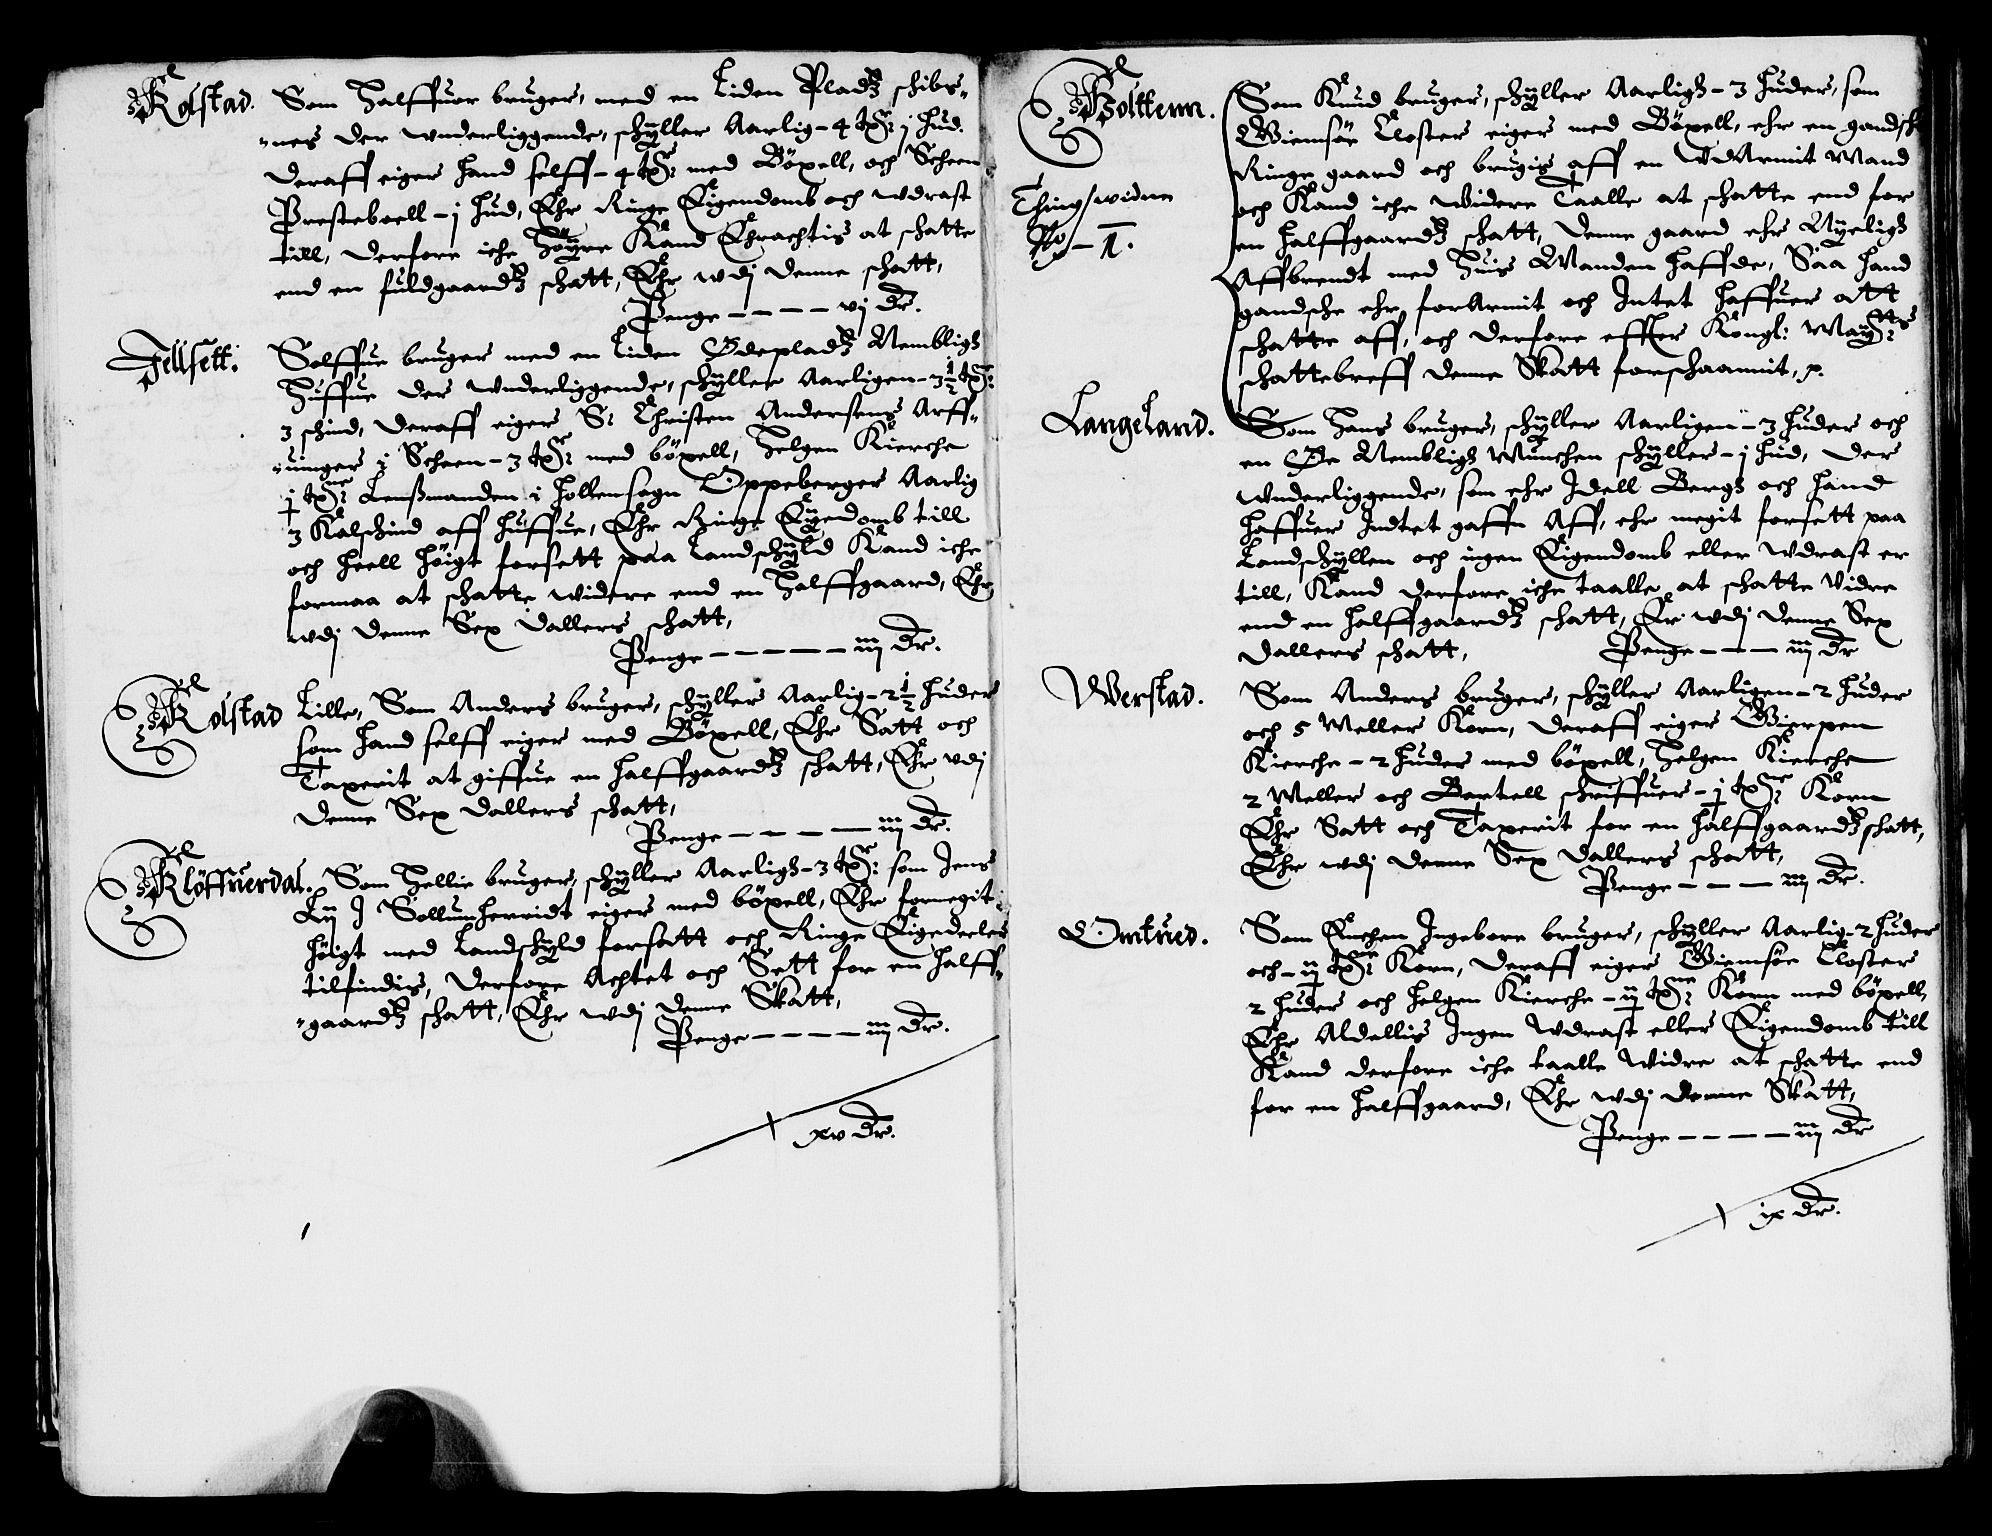 Kolstad. Som Halffuor bruger, med en Liden Pladtz schibs-
-nes der wnderliggende, schÿller Aarlig - 4 tꝭ: j Hud.
deraff eiger hand selff - 4 tꝭ: med Böxell, och Scheen
Presteboell - j hud, Ehr Ringe Eigendomb och wdrast
till, derfore iche Höÿre Kand Ehrachtis at schatte
end en fuldgaardtz schatt, Ehr wdj denne schatt,
Penge - - - - vj dr.
Fellsett. Solffue bruger med en Liden Ødepladtz Nembligh
Huffue der wnderliggende, schÿller Aarligen - 3½ tꝭ:
3 schind, deraff eiger S: Christen Andersens Arff-
-uinger i Scheen - 3 tꝭ: med böxell, Helgen Kierche
½ tꝭ: Lenßmanden i Hollensogn Oppeberger Aarlig
3 Kalschind aff Huffue, Ehr Ringe Eÿendomb till
och heell höigt forsett paa Landschÿld Kand iche
formaa at schatte widere end en Halffgaard, Ehr
wdj denne Sex dallers schatt,
Penge - - - - - iij dr.
Kolstad Lille, Som Anders bruger, schÿller Aarlig - 2½ huder
som hand selff eiger med Böxell, Ehr Satt och
Taxerit at giffue en halffgaardtz schatt, Ehr wdj
denne Sex dallers schatt,
Penge - - - - - iij dr.
Klöffuerdal. Som Hellie bruger, schÿller Aarligh - 3 tꝭ: som Jens
Lÿ J Sollumherridt eiger med böxell, Ehr formegit
höigt med Landschÿld forsatt och Ringe Eigedeeler
tilfindis, derfore Achtet och Sett for en halff-
-gaardtz schatt, Ehr wdj denne Skatt,
Penge - - - - iij dr.
xv dr.
Holttenn. Som Knud bruger, schÿller Aarligh - 3 huder, som
Giemsöe Closter eiger med Böxell, ehr en gandsche
Ringe gaard och brugis aff en wdArmit Mand
Thingswidne och Kand iche Widere Taalle at schatte end for
No - 1. en halffgaardtz schatt, denne gaard ehr Nÿeligh
Affbrendt med huis Manden haffde, Saa hand
gandsche ehr forArmit och Intet haffuer att
schatte aff, och derfore effter Kongl: Maÿtts:
schattebreff denne Skatt forschaanit, p.
Langeland. Som Hans bruger, schÿller Aarligen - 3 huder och
en Øe Nembligh Munchen schÿller - j hud, der
wnderliggende, som ehr Idell Bergh och hand
haffuer Indtet gaffn Aff, ehr megit forsett paa
Landschÿllen och ingen Eigendomb eller wdrast er
till, Kand derfore iche taalle at schatte Vidre
end en halffgaardtz schatt, Er wdj denne Sex
dallers schatt,
Penge - - - iij dr
Werstad. Som Anders bruger, schÿller Aarligen - 2 huder
och 5 Meller Korn, deraff eiger Gierpen
Kierche - 2 huder med böxell, Helgen Kierche
2 Meller och Bertell schriffuer - ½ tꝭ: Korn
Ehr Satt och Taxerit for en halffgaardtz schatt,
Ehr wdj denne Sex dallers schatt,
Penge - - - iij dr.
Omtued. Som Enchen Ingebore bruger, schÿller Aarlig 2 huder
och - ij tꝭ: Korn, deraff eiger Giemsöe Closter
2 huder och Helgen Kierche - ij tꝭ: Korn med böxell,
Ehr Aldellis Ingen wdrast eller Eigendomb till
Kand derfore iche taalle widre at schatte end
for en halffgaard, Ehr wdj denne Skatt,
Penge - - - - iij dr
ix dr.